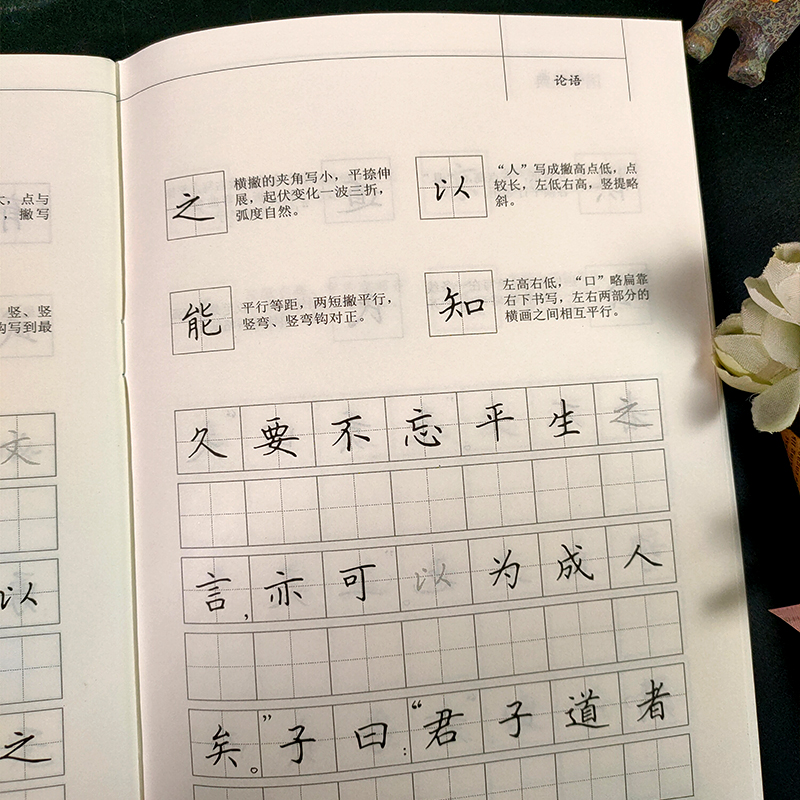 论语
大，点与
，撇写
竖、竖
钩写到最
文
以
之
之
横撇的夹角写小，平捺伸
展，起伏变化一波三折，
弧度自然。
以
“人”写成撇高点低，点
较长，左低右高，竖提略
斜。
能
平行等距，两短撇平行，
竖弯、竖弯钩对正。
知
左高右低，“口”略扁靠
右下书写，左右两部分的
横画之间相互平行。
久要不忘平生之
言，亦可以为成人
矣。”子曰：“君子道者